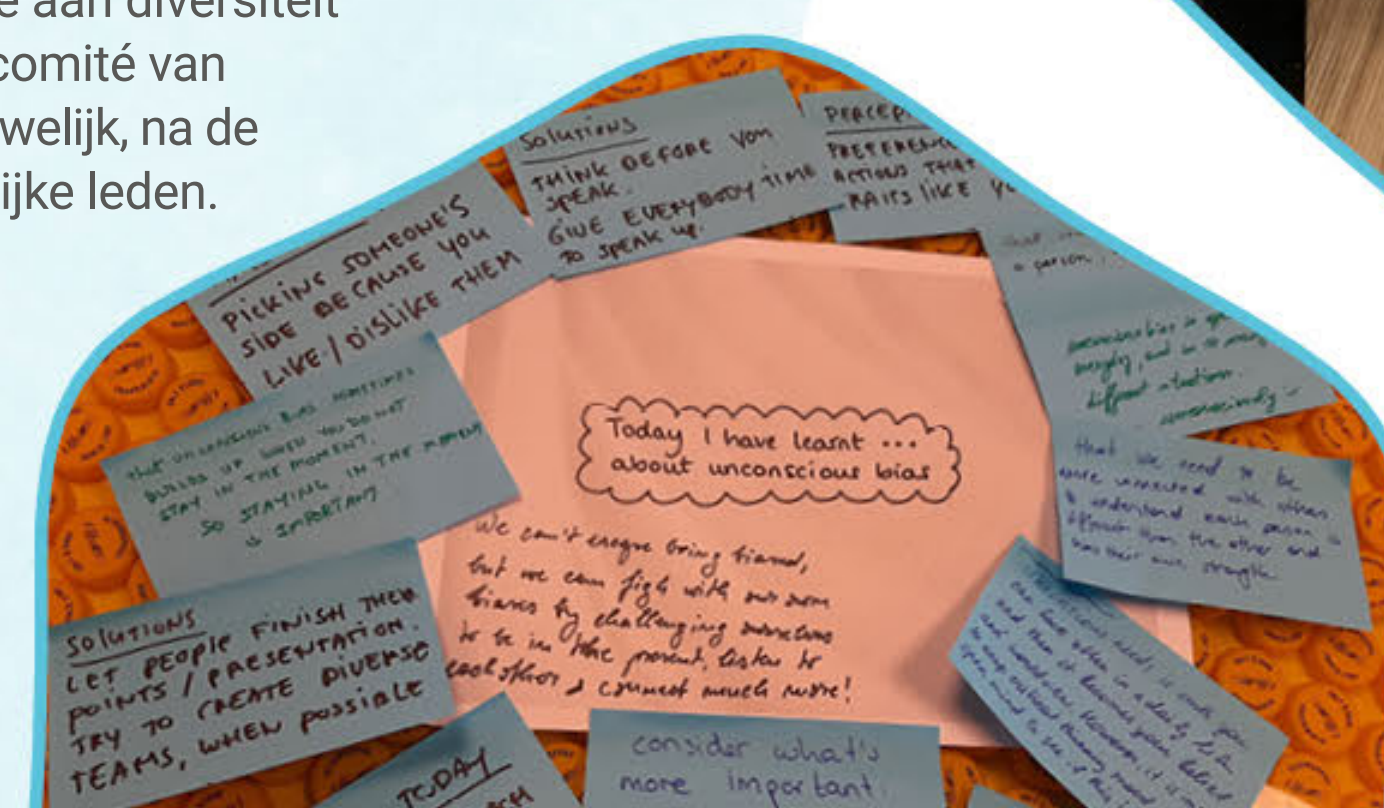 e aan diversiteit
comité van
welijk, na de
ijke leden.
SOLUTIONS
THINK BEFORE YOU
SPEAK.
GIVE EVERYBODY TIME
TO SPEAK UP.
PERCEP
PREFERENC
ACTIONS THAT
RAITS LIKE YO
PICKING SOMEONE'S
SIDE BECAUSE YOU
LIKE / DISLIKE THEM
a person
unconscious bias is
and in so many
different situations.
unconsciously
that UNCONSCIOUS BIAS SOMETIMES
BUILDS UP WHEN YOU DO NOT
STAY IN THE MOMENT.
SO STAYING IN THE MOMENT
IS IMPORTANT
Today I have learnt ...
about unconscious bias
We can't being biased,
but we can figh with our own
biases by challenging ourselves
to be in the present, listen to
each other & connect much more!
that we need to be
more connected with others
to understand each person is
different than the other and
has their own strength
SOLUTIONS
LET PEOPLE FINISH THEIR
POINTS / PRESENTATION.
TRY TO CREATE DIVERSE
TEAMS, WHEN POSSIBLE
TODAY
consider what's
more important.